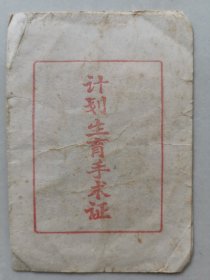 计划生育手术证